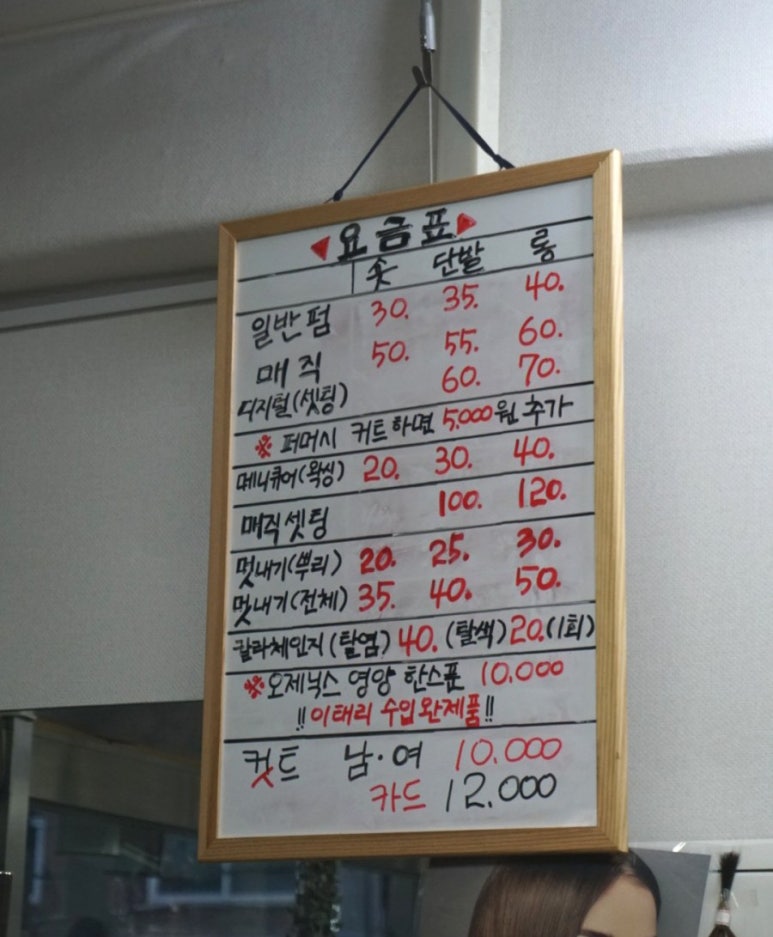 ◀요금표▶
숏 단발 롱
일반펌 30. 35. 40.
매직 50. 55. 60.
디지털(셋팅) 60. 70.
※ 퍼머시 커트하면 5,000원 추가
메니큐어(왁싱) 20. 30. 40.
매직셋팅 100. 120.
멋내기(뿌리) 20. 25. 30.
멋내기(전체) 35. 40. 50.
칼라체인지(탈염) 40. (탈색) 20.(1회)
※오제닉스 영양 한스푼 10.000
!!이태리 수입완제품!!
컷트 남·여 10.000
카드 12.000